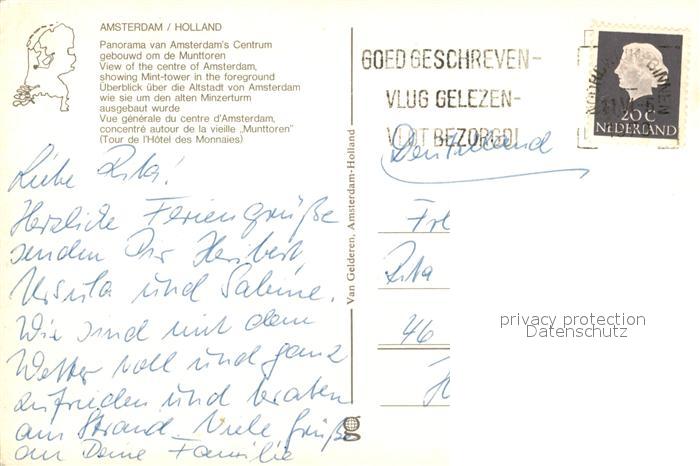 AMSTERDAM / HOLLAND
Panorama van Amsterdam's Centrum
gebouwd om de Munttoren
View of the centre of Amsterdam,
showing Mint-tower in the foreground
Überblick über die Altstadt von Amsterdam
wie sie um den alten Minzerturm
ausgebaut wurde
Vue générale du centre d'Amsterdam,
concentré autour de la vieille „Munttoren"
(Tour de l'Hôtel des Monnaies)
Liebe Rita!
Herzliche Feriengrüße
senden Dir Heribert,
Ursula und Sabine.
Wir sind mit dem
Wetter voll und ganz
zufrieden und braten
am Strand. Viele Grüße
an Deine Familie
Van Gelderen, Amsterdam-Holland
g
GOED GESCHREVEN-
VLUG GELEZEN-
VLUT BEZORGD!
20 C
NEDERLAND
Deutschland
Frl
Rita
46
privacy protection
Datenschutz